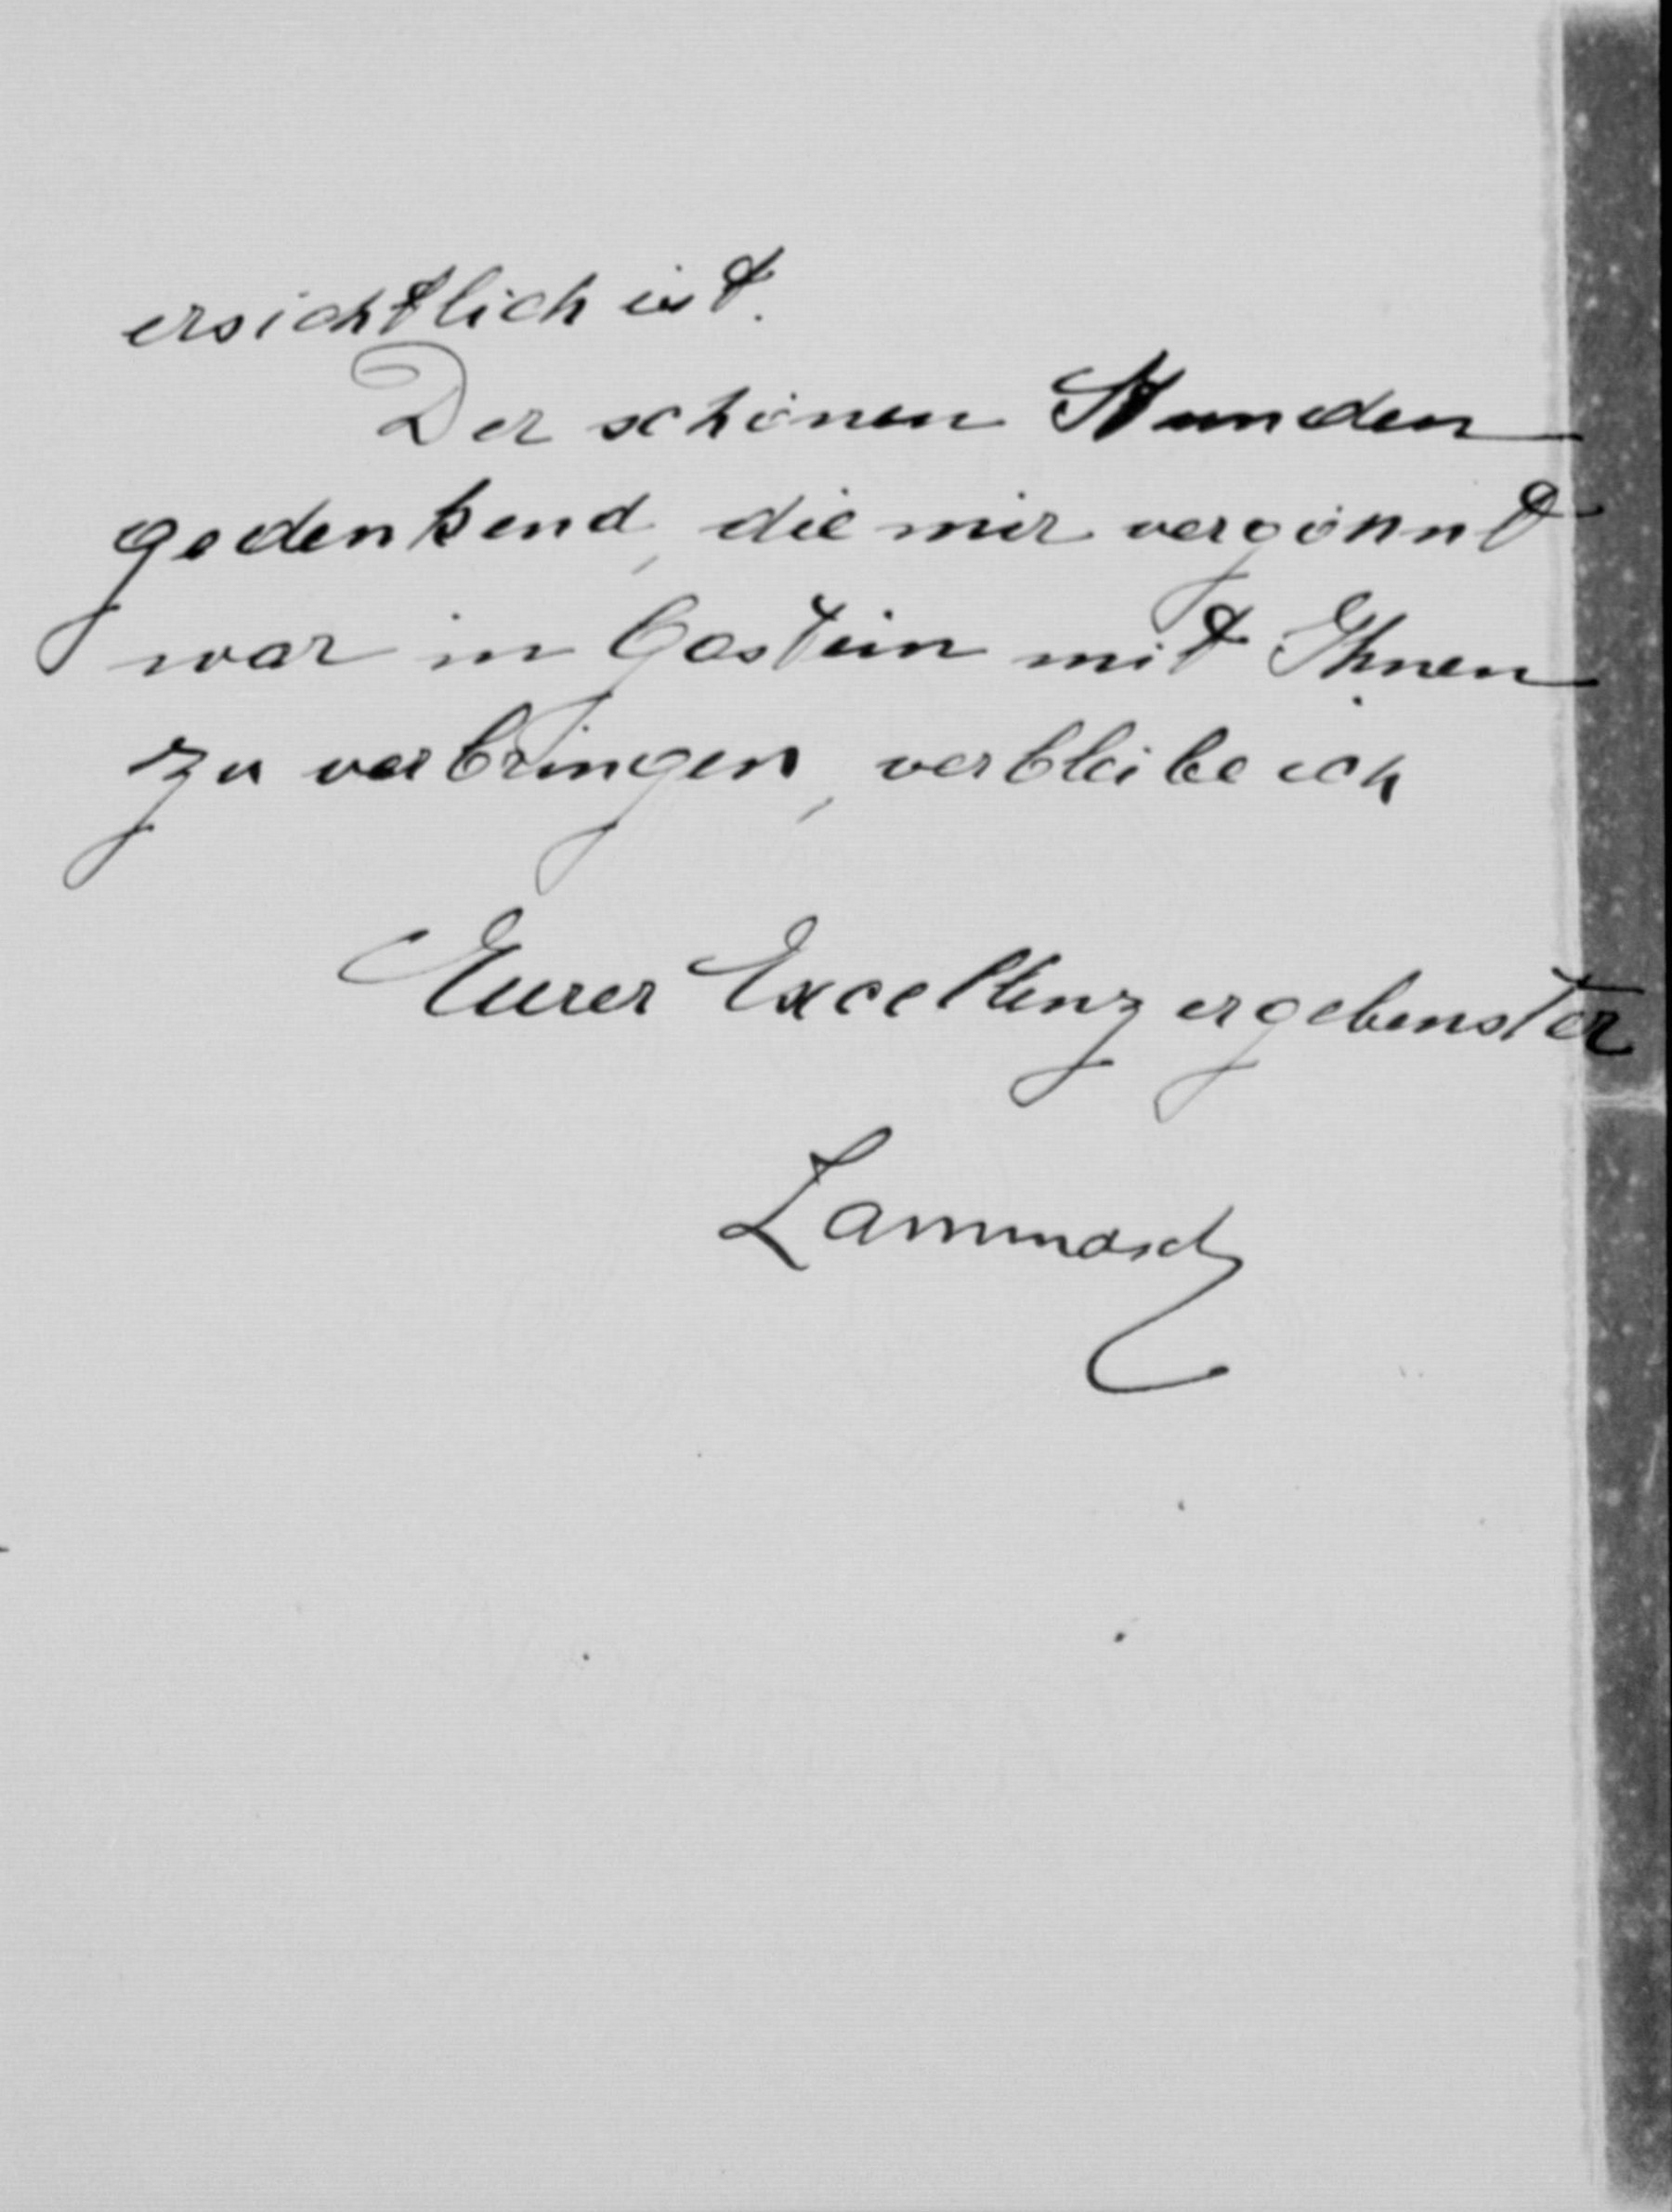 ersichtlich ist.
Der schönen Stunden
gedenkend, die mir vergönnt
war in Gastein mit Ihnen
zu verbringen, verbleibe ich
Eurer Excellenz ergebenster
Lammasch